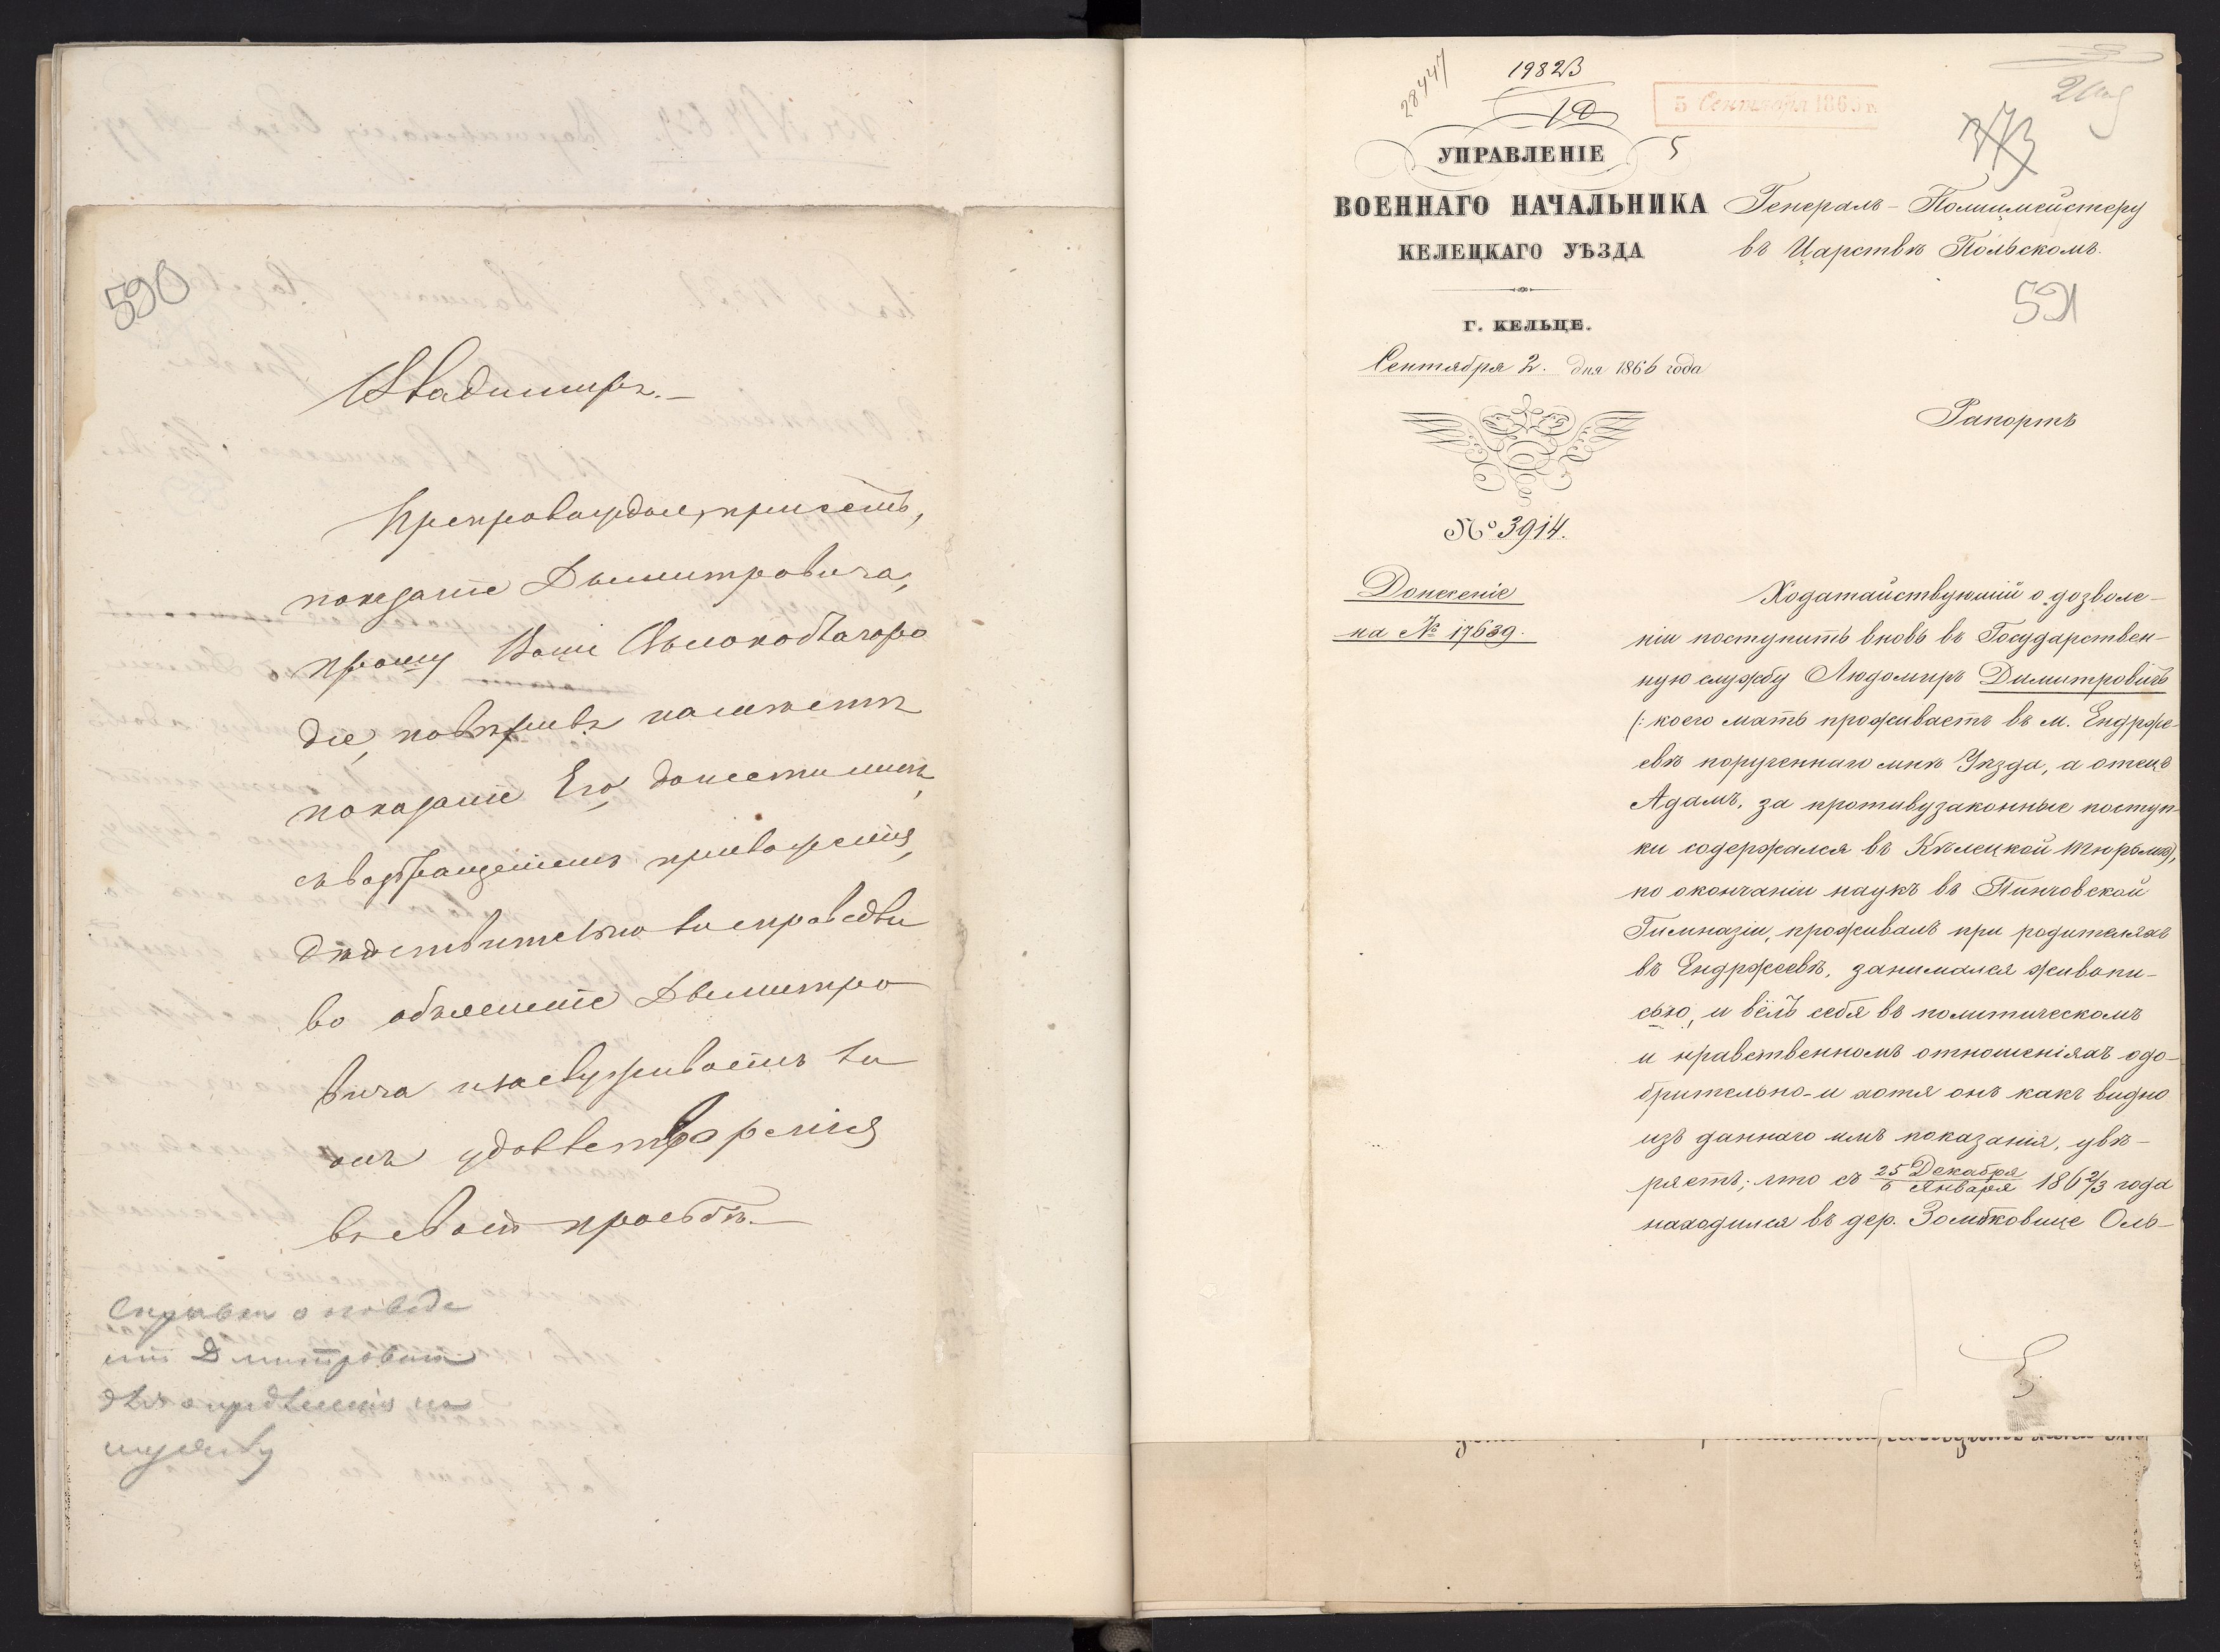 590
Владимиръ.
Препровождая присемъ,
показаніе Дымитровича,
прошу Ваше Высокоблагоро
діе, повѣривъ
показаніе Его, донести мнѣ,
съ возвращеніемъ приложенія,
дѣйствительно ли справедли
во объясненіе Дымитро
вича и заслуживаетъ ли
онъ удовлетворенія
въ своей просьбѣ.
Справка о поведе
ніи Дмитровича
для опредѣленія на
службу
28447
1982
10
5 Сентября 186 г.
373
УПРАВЛЕНІЕ
5
ВОЕННАГО НАЧАЛЬНИКА
КЕЛЕЦКАГО УѢЗДА
Г. КЕЛЬЦЕ.
Сентября 2. дня 1866 года
№ 3914.
Донесеніе
на № 17639.
Генералъ-Полицмейстеру
въ Царствѣ Польскомъ.
591
Рапортъ
Ходатайствующій о дозволе-
ніи поступить вновь въ Государствен-
ную службу Людомиръ Димитровичъ
(: коего мать проживаетъ въ м. Ендрже-
евѣ порученнаго мнѣ Уѣзда, а отецъ
Адамъ, за противузаконные поступ-
ки содержался въ Кѣлецкой тюрьмѣ),
по окончаніи наукъ въ Пинчовской
Гимназіи, проживалъ при родителяхъ
въ Ендржеевѣ, занимался живопи-
сью, и вёлъ себя въ политическомъ
и нравственномъ отношеніяхъ одо-
брительно-и хотя онъ какъ видно
изъ даннаго имъ показанія, увѣ-
ряетъ; что съ 25 Декабря / 6 Января 186 2/3 года
находился въ дер. Зомбковице Оль-